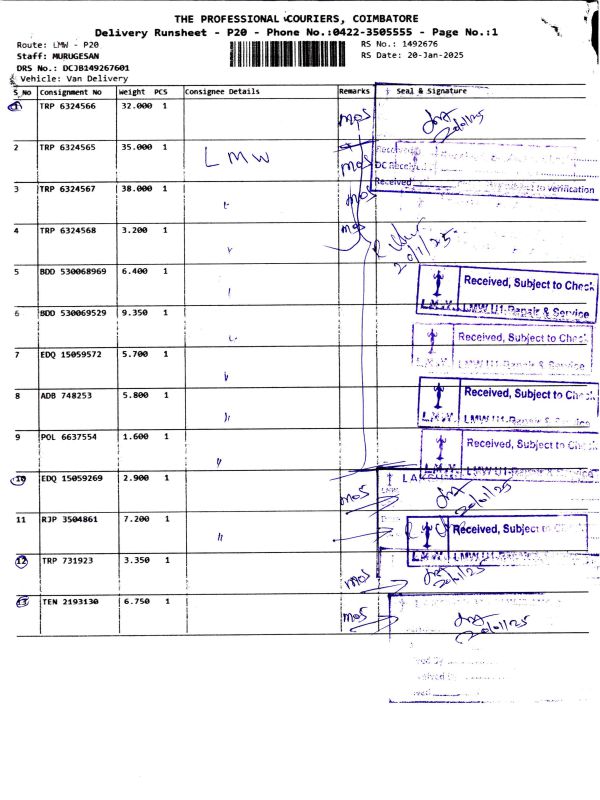 THE PROFESSIONAL COURIERS, COIMBATORE
Delivery Runsheet - P20 - Phone No.:0422-3505555 - Page No.:1
Route: LMW - P20
RS No.: 1492676
Staff: MURUGESAN
RS Date: 20-Jan-2025
DRS No.: DCJB149267601
Vehicle: Van Delivery
S_No Consignment No Weight PCS Consignee Details Remarks Seal & Signature
1 TRP 6324566 32.000 1 mos 20/01/25
2 TRP 6324565 35.000 1 LMW mos
Received
DC Receiv
3 TRP 6324567 38.000 1 mos Received to verification
4 TRP 6324568 3.200 1 mos 20/1/25
5 BDD 530068969 6.400 1 Received, Subject to Check
L.M.W. LMW U1-Repair & Service
6 BDD 530069529 9.350 1 Received, Subject to Chec
LMW U1-Repair & Service
7 EDQ 15059572 5.700 1
8 ADB 748253 5.800 1 Received, Subject to Che
L.M.W. LMW U1-Repair & Service
9 POL 6637554 1.600 1 Received, Subject to Che
L.M.W. LMW U1-Repair & Service
10 EDQ 15059269 2.900 1 mos 20/01/25
11 RJP 3504861 7.200 1 Received, Subject to Che
L.M.W. LMW U1-Repair & Service
12 TRP 731923 3.350 1 mos 20/1/25
13 TEN 2193130 6.750 1 mos 20/01/25